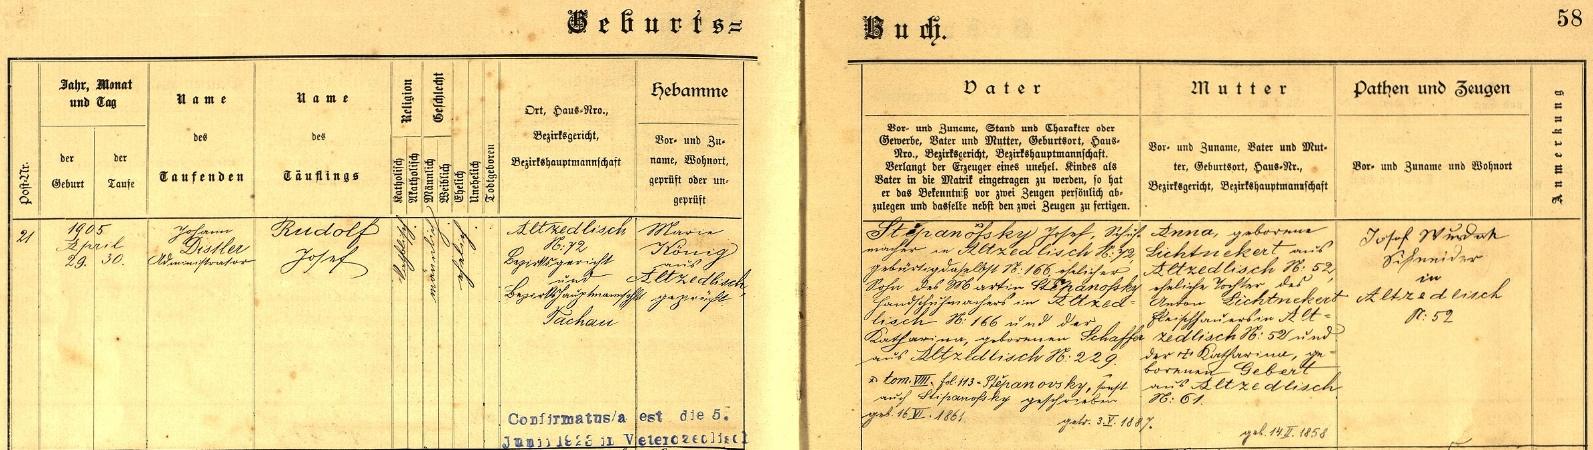 Geburts=
Buch.
58
Post-Nr.
Jahr, Monat
und Tag
der
Geburt
der
Taufe
Name
des
Taufenden
Name
des
Täuflings
Religion
Katholisch
Akatholisch
Geschlecht
Männlich
Weiblich
Ehelich
Unehelich
Todtgeboren
Ort, Haus-Nro.,
Bezirksgericht,
Bezirkshauptmannschaft
Hebamme
Vor- und Zu-
name, Wohnort,
geprüft oder un-
geprüft
Vater
Vor- und Zuname, Stand und Charakter oder
Gewerbe, Vater und Mutter, Geburtsort, Haus-
Nro., Bezirksgericht, Bezirkshauptmannschaft.
Verlangt der Erzeuger eines unehel. Kindes als
Vater in die Matrik eingetragen zu werden, so hat
er das Bekenntniß vor zwei Zeugen persönlich ab-
zulegen und dasselbe nebst den zwei Zeugen zu fertigen.
Mutter
Vor- und Zuname, Vater und Mut-
ter, Geburtsort, Haus-Nr.,
Bezirksgericht, Bezirkshauptmannschaft
Pathen und Zeugen
Vor- und Zuname und Wohnort
Anmerkung
21
1905
April
29. 30.
Johann
Distler
Administrator
Rudolf
Josef
katholisch
männlich
ehelich
Altzedlisch
N: 72
Bezirksgericht
und
Bezirkshauptmannschft
Tachau
Marie
König
aus
Altzedlisch,
geprüft
Stěpanofsky Josef, Schuh
macher in Altzedlisch N: 72,
gebürtig daselbst N: 166, ehelicher
Sohn des Martin Stěpanofsky
Handschuhmachers in Altzed-
lisch N: 166 und der
Katharina, geborenen Schaffa
aus Altzedlisch N: 229.
tom. VIII. fol. 113 - Stěpanovsky, sonst
auch Stipanofsky geschrieben
geb. 16/VI. 1861.
getr. 3.V. 1887.
Anna, geborene
Lichtnekert aus
Altzedlisch N: 52,
eheliche Tochter des
Anton Lichtnekert
Fleischhauers in Alt-
zedlisch N: 52 und
der † Katharina, ge-
borenen Gebert
aus Altzedlisch
N: 61.
geb. 14.II. 1858
Josef Wurdak
Schneider
in
Altzedlisch
N: 52
Confirmatus/a est die 5.
Junii 1923 in Veterozedlisch